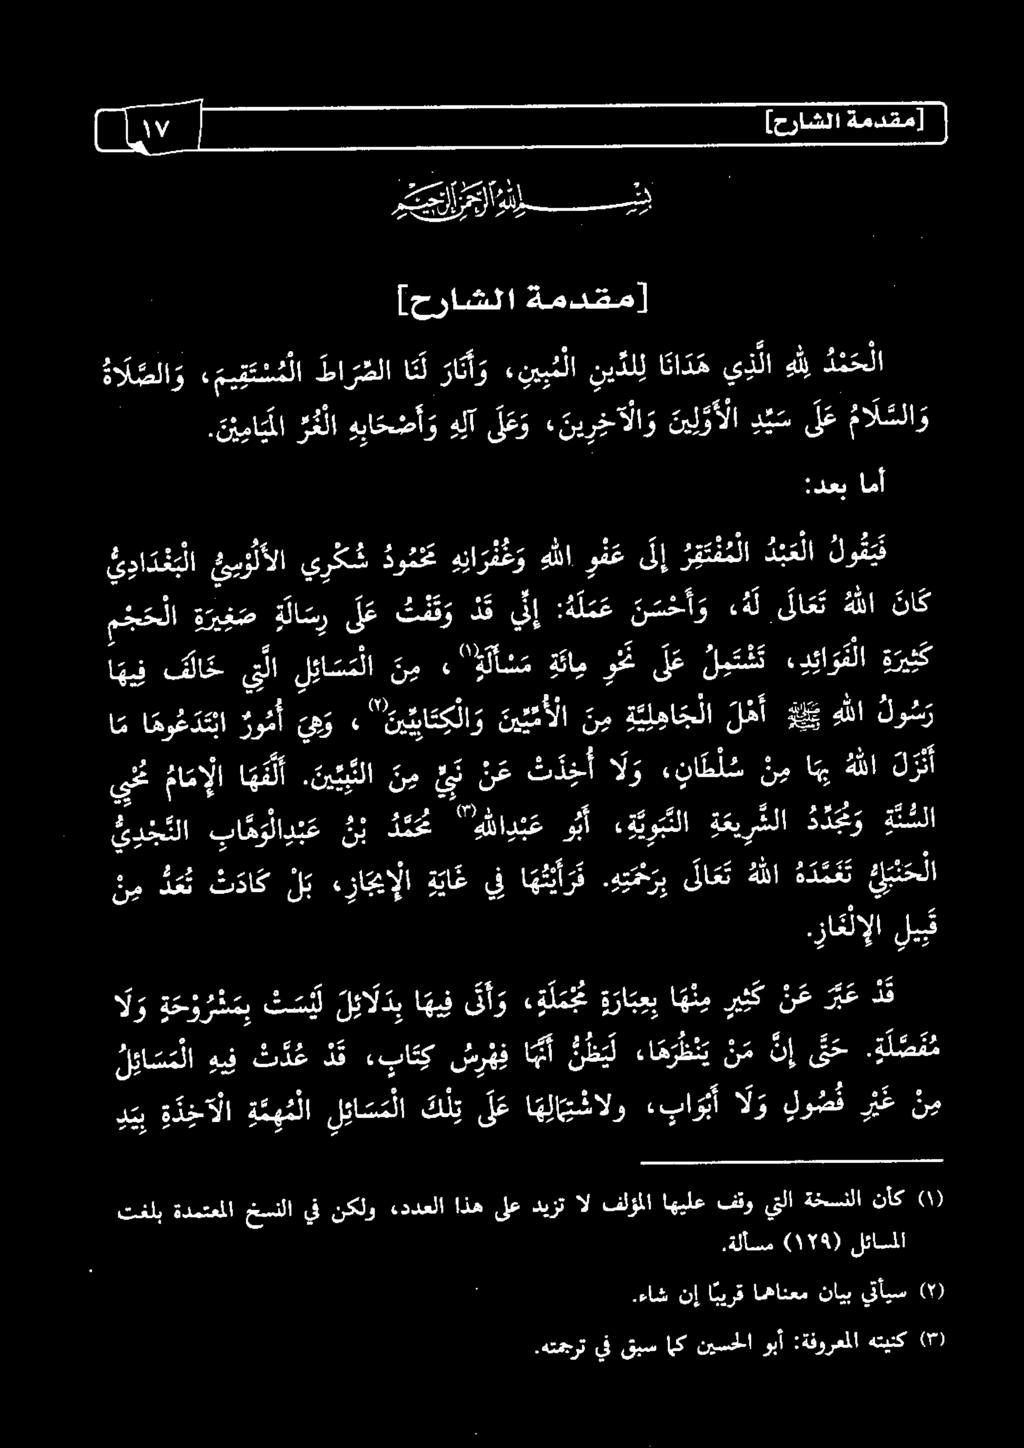 [مقدمة الشارح]
١٧
بِسْمِ اللهِ الرَّحْمٰنِ الرَّحِيْمِ
[مقدمة الشارح]
الْحَمْدُ للهِ الَّذِي هَدَانَا لِلدِّينِ الْمُبِينِ، وَأَنَارَ لَنَا الصِّرَاطَ الْمُسْتَقِيمَ، وَالصَّلَاةُ
وَالسَّلَامُ عَلَى سَيِّدِ الْأَوَّلِينَ وَالْآخِرِينَ، وَعَلَى آلِهِ وَأَصْحَابِهِ الْغُرِّ الْمَيَامِيْنَ.
أما بعد:
فَيَقُولُ الْعَبْدُ الْمُفْتَقِرُ إِلَى عَفْوِ اللهِ وَغُفْرَانِهِ مَحْمُودُ شُكْرِي الألُوْسِيُّ الْبَغْدَادِيُّ
كَانَ اللهُ تَعَالَى لَهُ، وَأَحْسَنَ عَمَلَهُ: إِنِّي قَدْ وَقَفْتُ عَلَى رِسَالَةٍ صَغِيرَةِ الْحَجْمِ
كَثِيرَةِ الْفَوَائِدِ، تَشْتَمِلُ عَلَى نَحْوِ مِائَةِ مَسْأَلَةٍ(١)، مِنَ الْمَسَائِلِ الَّتِي خَالَفَ فِيهَا
رَسُولُ اللهِ ﷺ أَهْلَ الْجَاهِلِيَّةِ مِنَ الْأُمِّيِّينَ وَالْكِتَابِيِّينَ(٢)، وَهِيَ أُمُورٌ ابْتَدَعُوهَا مَا
أَنْزَلَ اللهُ بِهَا مِنْ سُلْطَانٍ، وَلَا أُخِذَتْ عَنْ نَبِيٍّ مِنَ النَّبِيِّينَ. أَلَّفَهَا الْإِمَامُ مُحْيِي
السُّنَّةِ وَمُجَدِّدُ الشَّرِيعَةِ النَّبَوِيَّةِ، أَبُو عَبْدِاللهِ(٣) مُحَمَّدُ بْنُ عَبْدِالْوَهَّابِ النَّجْدِيُّ
الْحَنْبَلِيُّ تَغَمَّدَهُ اللهُ تَعَالَى بِرَحْمَتِهِ. فَرَأَيْتُهَا فِي غَايَةِ الْإِيجَازِ، بَلْ كَادَتْ تُعَدُّ مِنْ
قَبِيلِ الْإِلْغَازِ.
قَدْ عَبَّرَ عَنْ كَثِيرٍ مِنْهَا بِعِبَارَةٍ مُجْمَلَةٍ، وَأَتَى فِيهَا بِدَلَائِلَ لَيْسَتْ بِمَشْرُوْحَةٍ وَلَا
مُفَصَّلَةٍ. حَتَّى إِنَّ مَنْ يَنْظُرُهَا، لَيَظُنُّ أَنَّهَا فِهْرِسُ كِتَابٍ، قَدْ عُدَّتْ فِيهِ الْمَسَائِلُ
مِنْ غَيْرِ فُصُولٍ وَلَا أَبْوَابٍ، ولاشْتِمَالِهَا عَلَى تِلْكَ الْمَسَائِلِ الْمُهِمَّةِ الْآخِذَةِ بِيَدِ
(١) كأن النسخة التي وقف عليها المؤلف لا تزيد على هذا العدد، ولكن في النسخ المعتمدة بلغت
المسائل (١٢٩) مسألة.
(٢) سيأتي بيان معناهما قريبًا إن شاء.
(٣) كنيته المعروفة: أبو الحسين كما سبق في ترجمته.